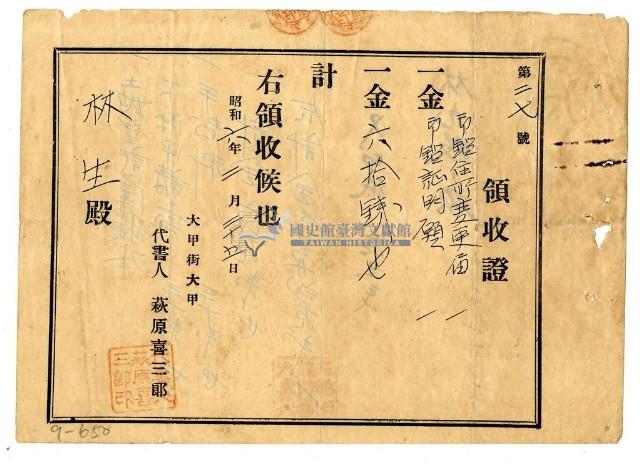 領收證
第二七號
一金 印鑑住所變更届 一
印鑑証明願 一
一金六拾錢也
計
右領收候也
昭和六年二月二十五日
大甲街大甲
代書人 萩原喜三郎
林生殿
國史館臺灣文獻館
TAIWAN HISTORICA
9-650